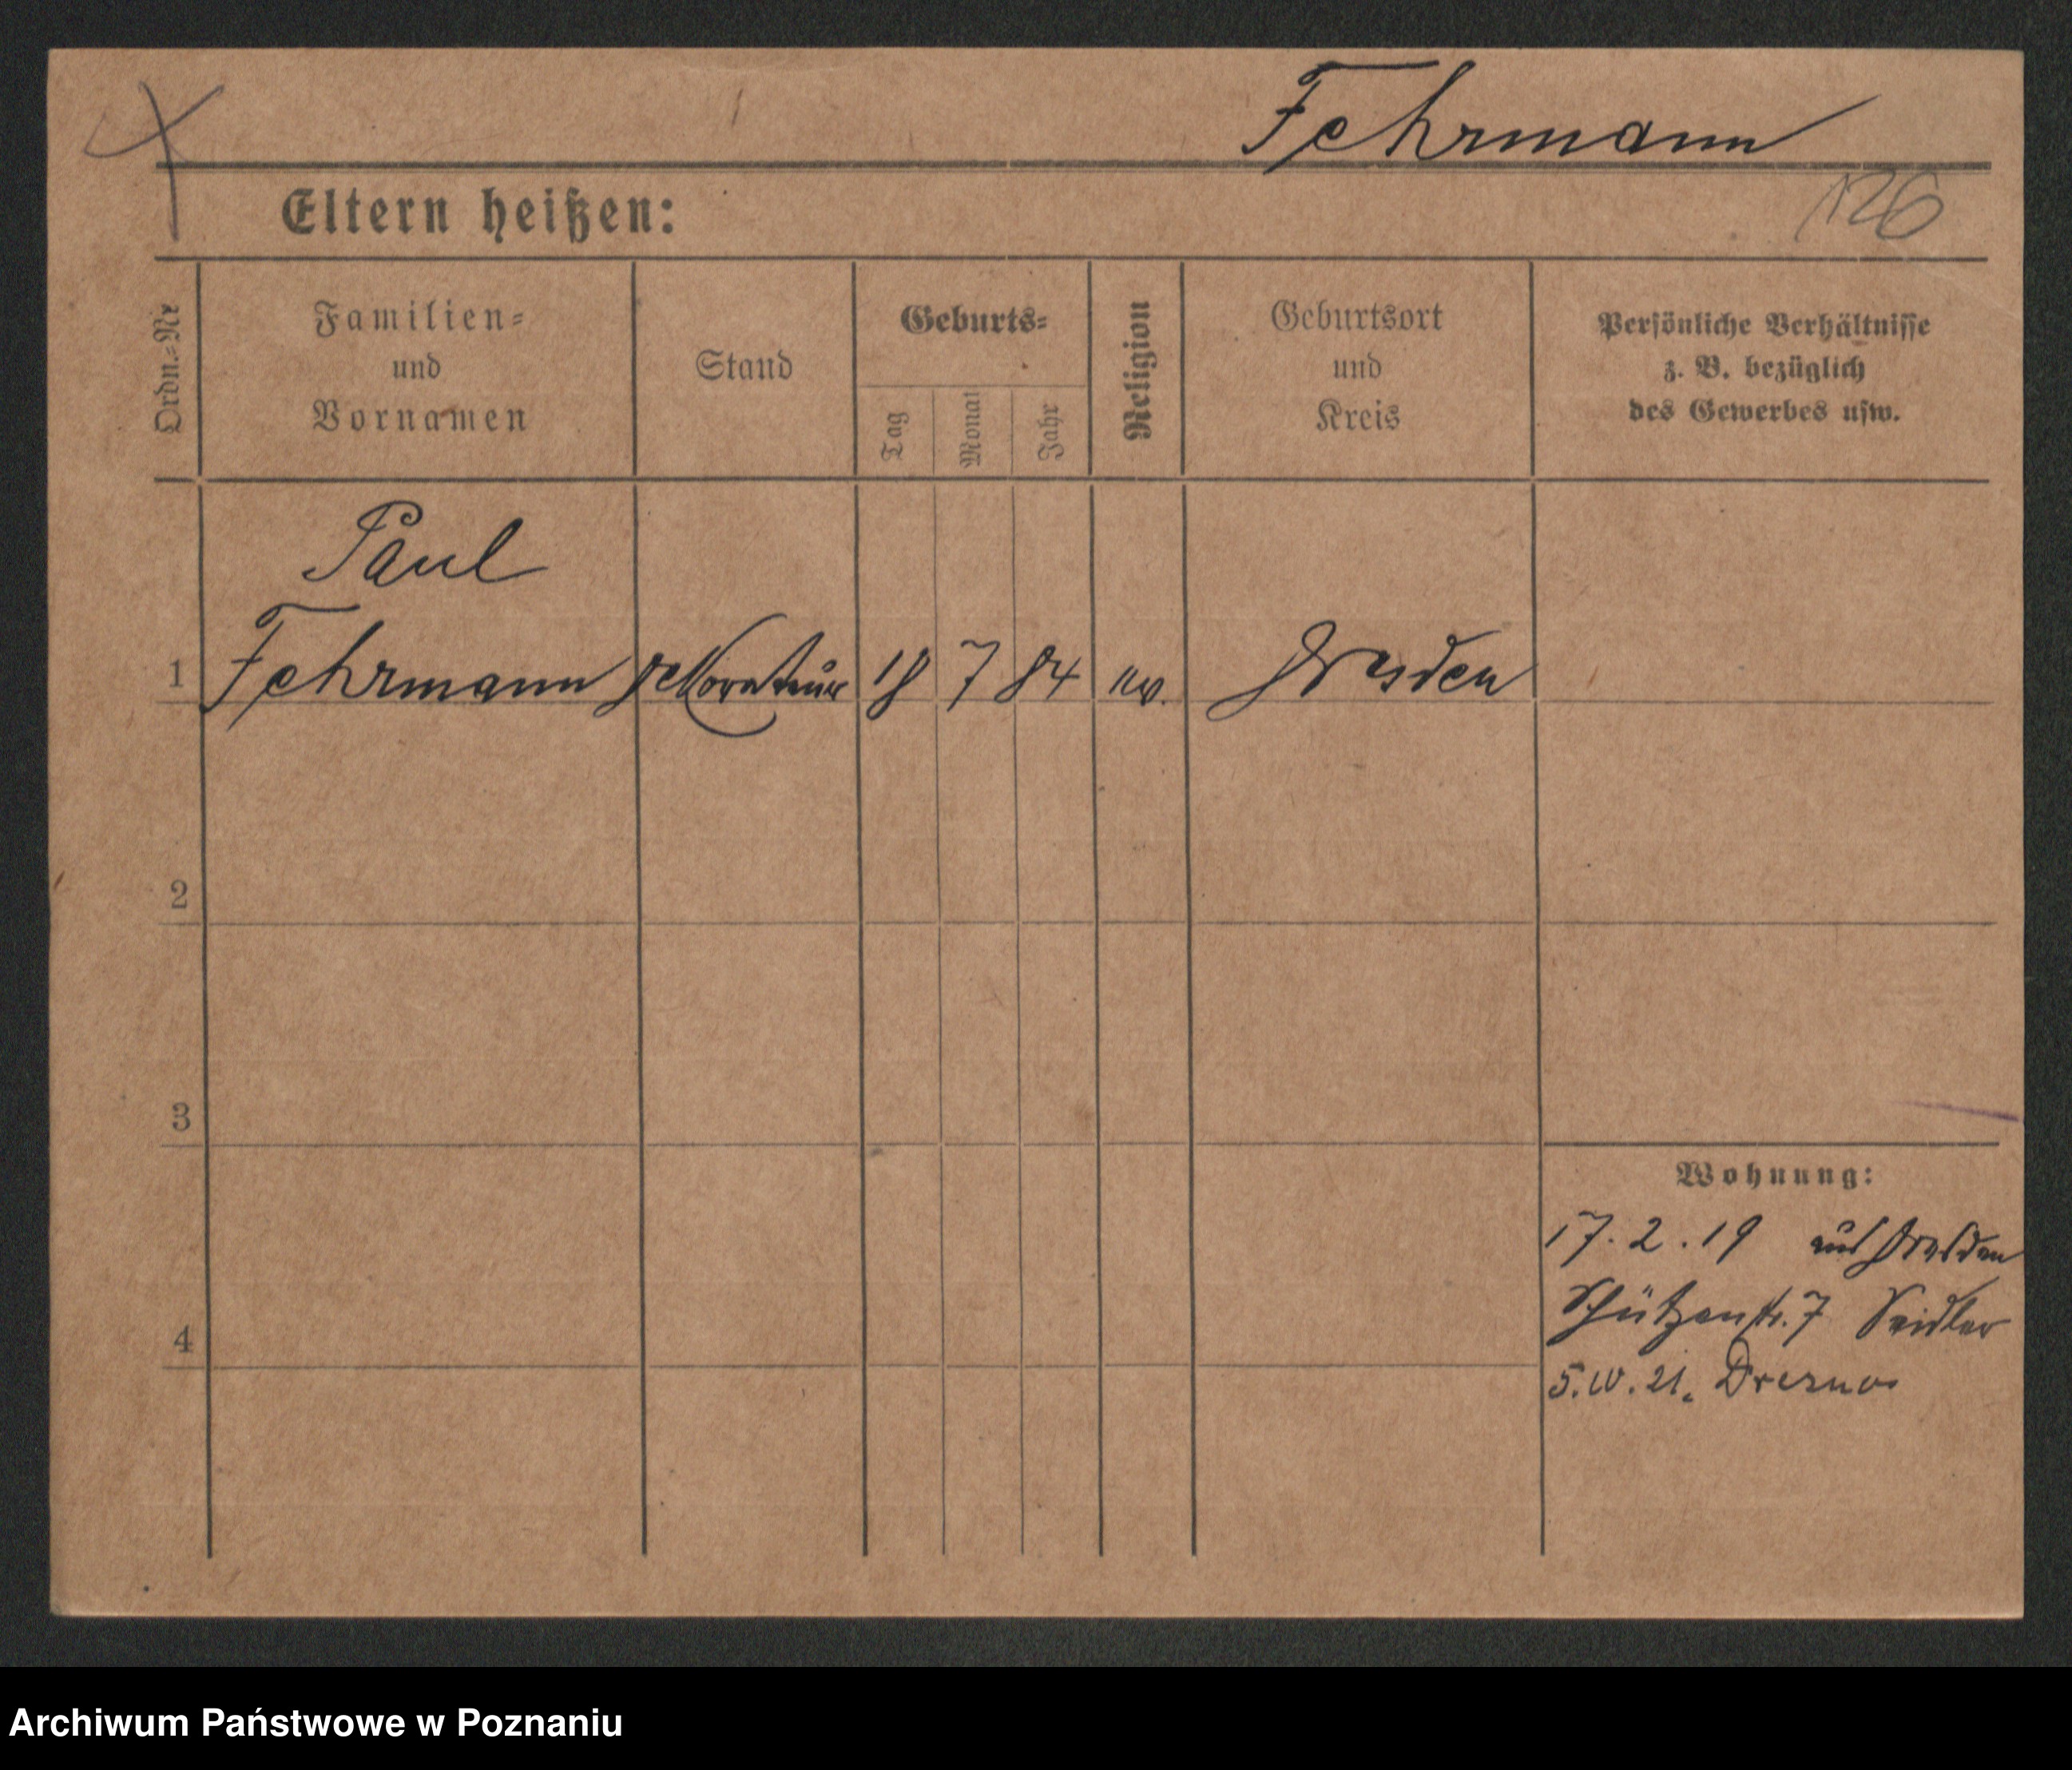 Fehrmann
Eltern heißen:
126
Ordn.-Nr
Familien-
und
Vornamen
Stand
Geburts-
Tag
Monat
Jahr
Religion
Geburtsort
und
Kreis
Persönliche Verhältnisse
z. B. bezüglich
des Gewerbes usw.
Paul
1 Fehrmann Dekorateur 18 7 84 ev. Dresden
2
3
Wohnung:
17. 2. 19 aus Dresden
Schützenstr. 7 Seidler
4
5. IV. 21. Drezno
Archiwum Państwowe w Poznaniu